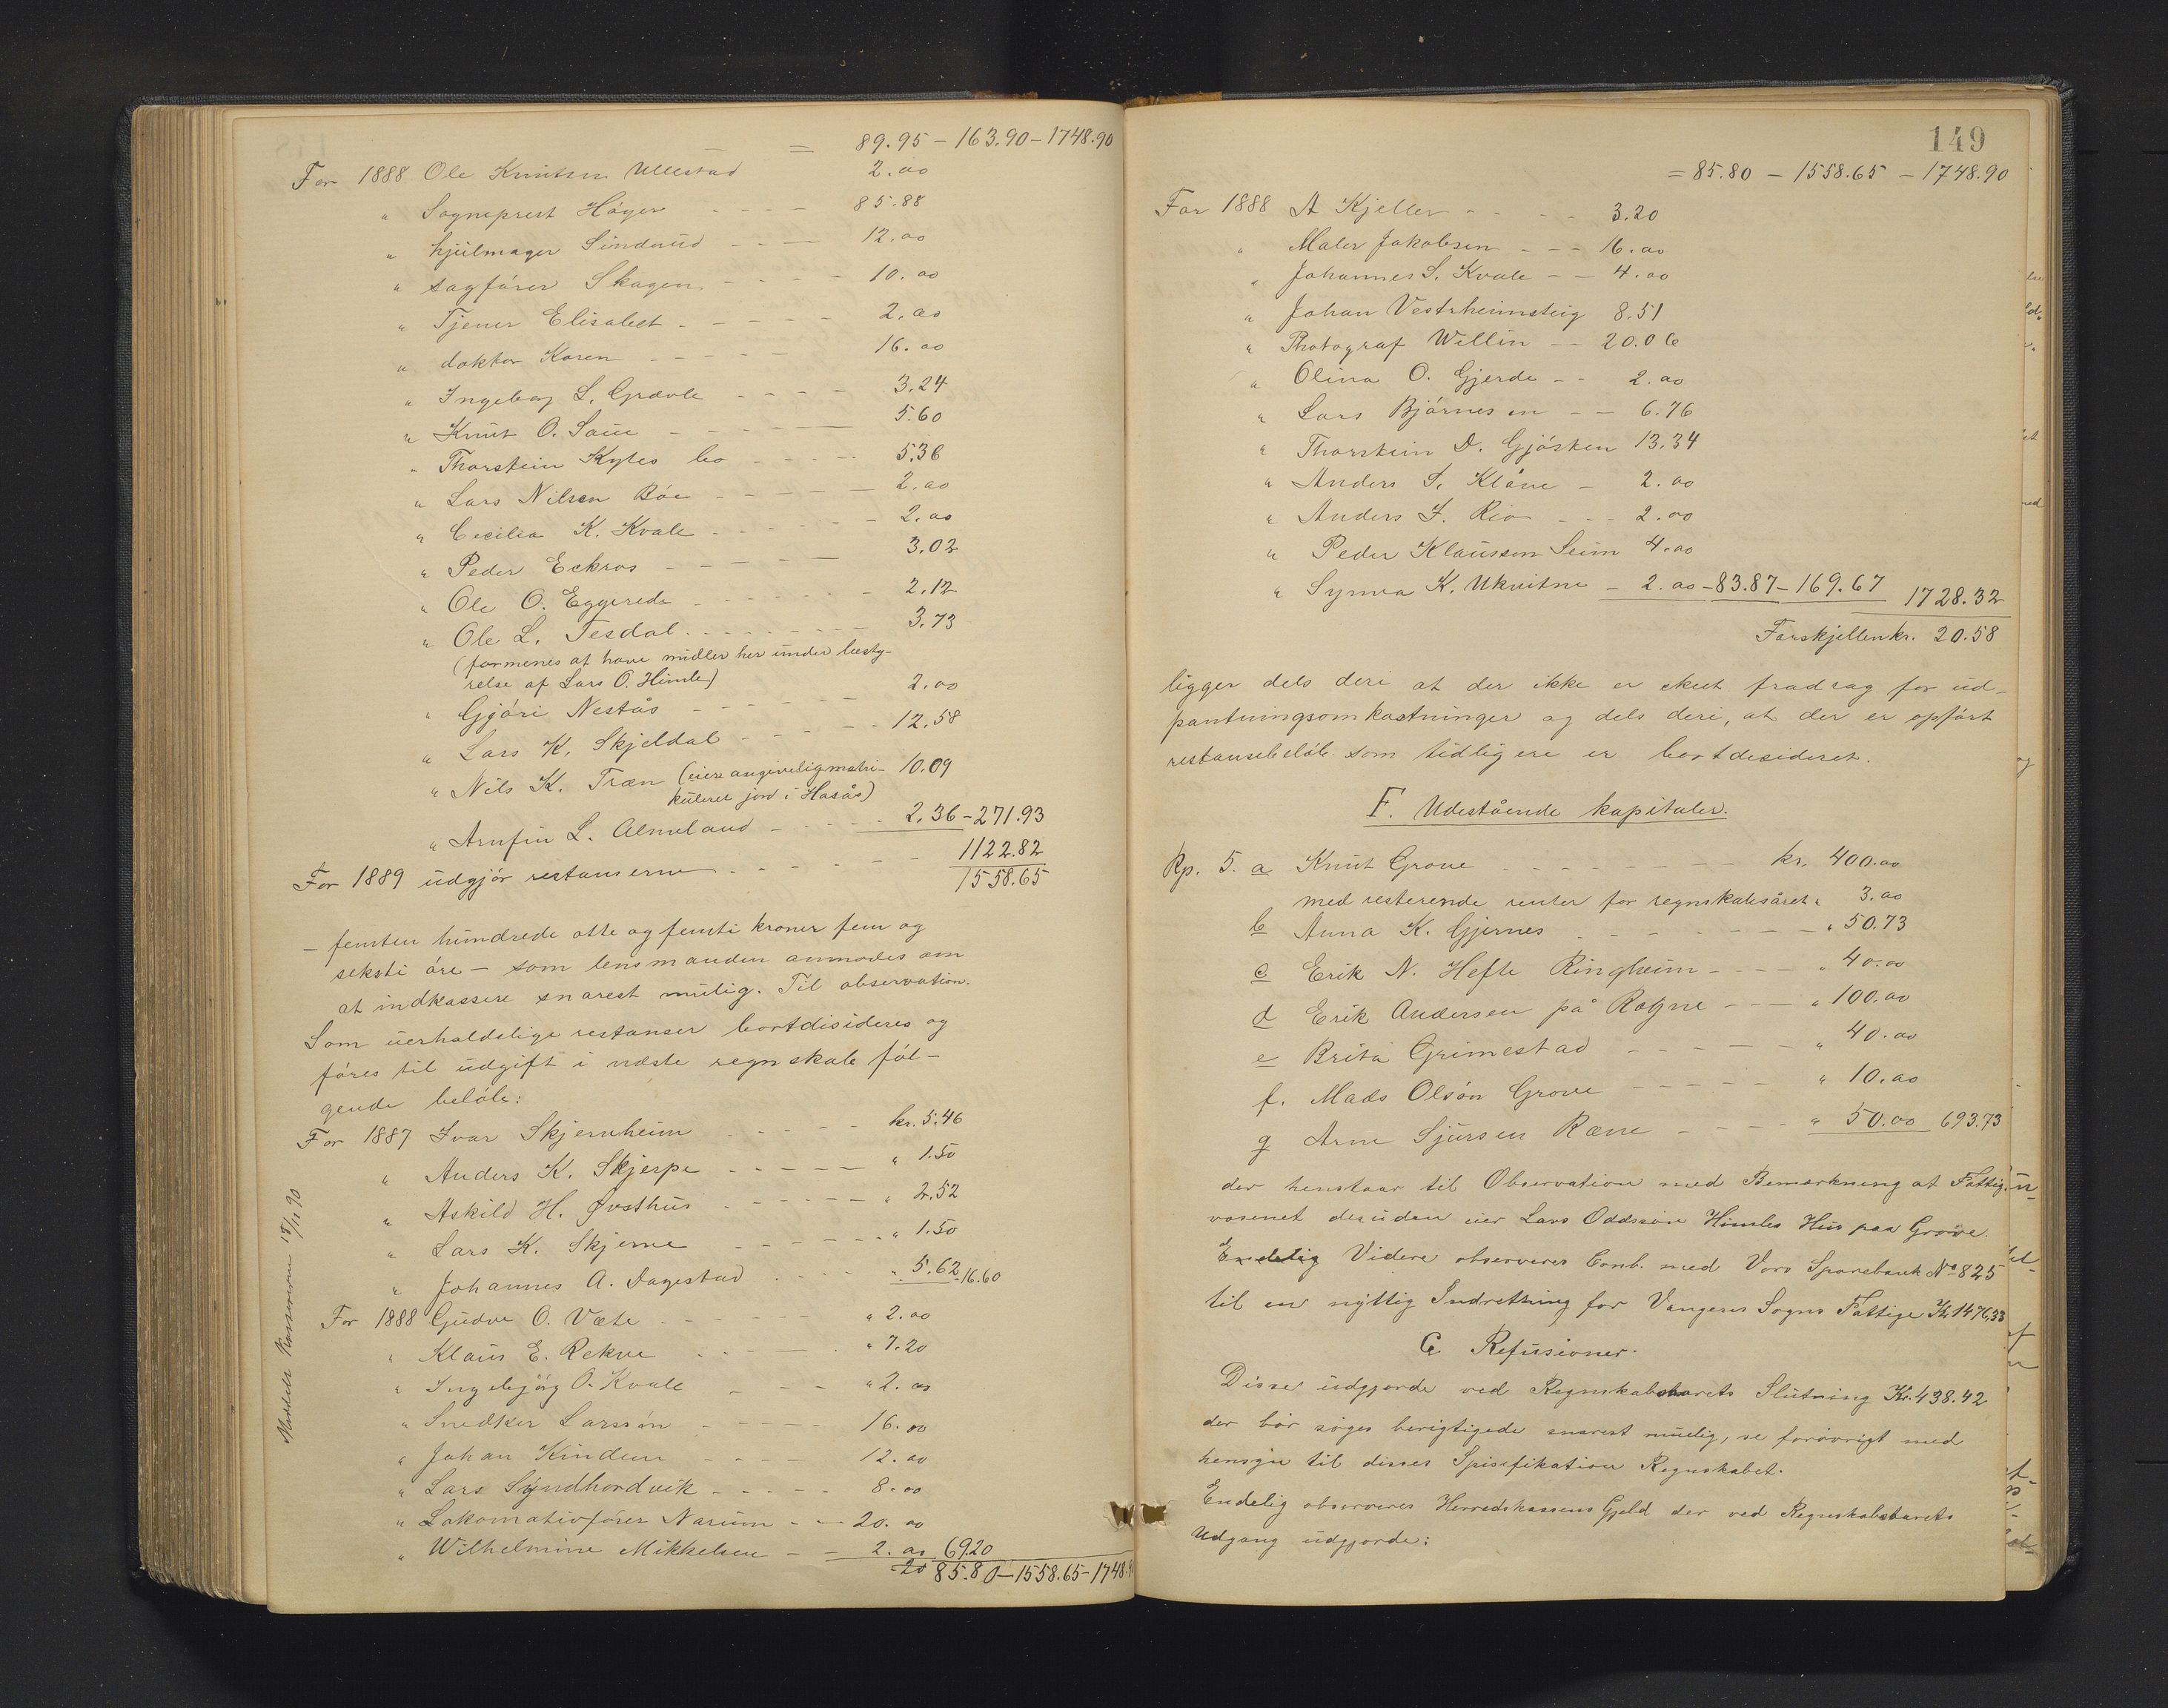 = 89.95 - 163.90 - 1748.90
For 1888 Ole Knutsen Ullestad 2.00
" Sogneprest Høyer - - - - 85.88
" hjulmager Sinderud - - - 12.00
" sagfører Skagen - - - - 10.00
" Tjener Elisabet - - - - - 2.00
" doktor Koren - - - - - 16.00
" Ingeborg L. Grævle - - - - 3.24
" Knut O. Saue - - - - - 5.60
" Thorstein Kytes bo - - - - 5.36
" Lars Nilsen Bøe - - - - - 2.00
" Cecilia K. Kvale - - - - - 2.00
" Peder Eckros - - - - - 3.02
" Ole O. Eggerede - - - - - - 2.12
" Ole L. Tesdal - - - - - - 3.73
(formenes at have midler her under besty-
relse af Lars O. Himle)
" Gjøri Nestås - - - - - - 2.00
" Lars K. Skjeldal - - - - - 12.58
" Nils K. Træn (eier angivelig matri- 10.09
kuleret jord i Hasås)
" Arnfin L. Almeland - - - - - 2.36 - 271.93
For 1889 udgjør restanserne - - - - - - 1122.82
1558.65
- femten hundrede otte og femti kroner fem og
seksti øre - som lensmanden anmodes om
at indkassere snarest mulig. Til observation.
Som uerholdelige restanser bortdisideres og
føres til udgift i næste regnskab føl-
gende beløb:
For 1887 Ivar Skjernheim - - - - - kr. 5.46
" Anders K. Skjerpe - - - - - " 1.50
" Askild H. Øvsthus - - - - - " 2.52
" Lars K. Skjerve - - - - - " 1.50
" Johannes A. Dagestad - - - - " 5.62 - 16.60
For 1888 Gudve O. Væte - - - - - - " 2.00
" Klaus E. Rekve - - - - - " 7.20
" Ingebjørg O. Kvale - - - " 2.00
" Snedker Larssøn - - - - - 16.00
" Johan Kindem - - - - 12.00
" Lars Syndhordvik - - - - - 8.00
" Lokomotivfører Narum - - - 20.00
" Wilhelmine Mikkelsen - - 2.00 69.20
85.80 - 1558.65 - 1748.90
Meddelt Kassereren 18/11 90
149
= 85.80 - 1558.65 - 1748.90
For 1888 A Kjeller - - - - 3.20
" Maler Jakobsen - - - 16.00
" Johannes S. Kvale - - 4.00
" Johan Vestrheimsteig 8.51
" Photograf Wellin - - 20.06
" Olina O. Gjerde - - 2.00
" Lars Bjørnesen - - 6.76
" Thorstein D. Gjøsten 13.34
" Anders S. Kløve - 2.00
" Anders J. Rio - - - 2.00
" Peder Klaussen Seim 4.00
" Synva K. Ukvitne - 2.00 - 83.87 - 169.67 1728.32
Forskjellen kr. 20.58
ligger dels deri at der ikke er skeet fradrag for ud-
pantningsomkostninger og dels deri, at der er opført
restansebeløb som tidligere er bortdesideret.
F. Udestående kapitaler.
Rp. 5. a Knut Grove - - - - - - - kr. 400.00
med resterende renter for regnskabsåret " 3.00
b Anna K. Gjernes - - - - - - - " 50.73
c Erik N. Hefte Ringheim - - - - " 40.00
d Erik Andersen på Rogne - - - " 100.00
e Brita Grimestad - - - - - " 40.00
f. Mads Olsøn Grove - - - - - " 10.00
g Arne Sjursen Ræne - - - - " 50.00 693.73
der henstaar til Observation med Bemærkning at Fattig-
væsenet desuden eier Lars Oddssøn Himles Hus paa Grove.
Endelig Videre observeres Conb. med Voss Sparebank No 825
til en nyttig Indretning for Vangens Sogns Fattige Kr 1476,33
G Refusioner.
Disse udgjorde ved Regnskabsaarets Slutning Kr. 438.42
der bør søges berigtigede snarest muelig, se forøvrigt med
hensyn til disses Spisifikation Regnskabet.
Endelig observeres Herredskassens Gjeld der ved Regnskabsaarets
Udgang udgjorde: